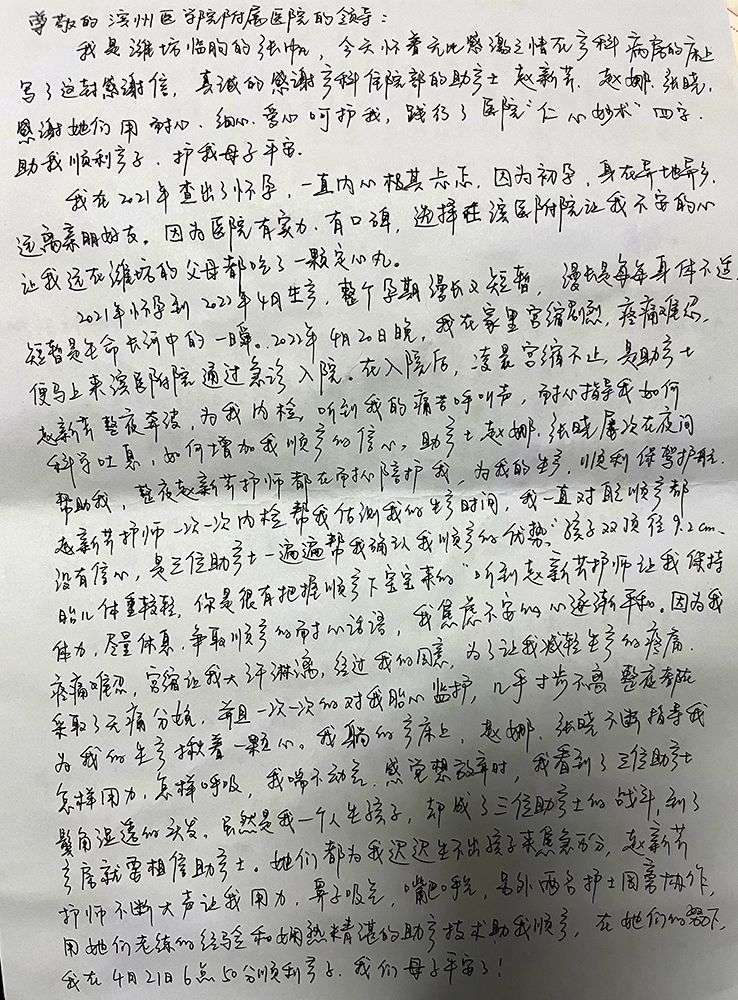 尊敬的滨州医学院附属医院的领导：
我是潍坊临朐的张帅，今天怀着无比感激之情在产科病房的床上
写了这封感谢信，真诚的感谢产科住院部的助产士赵新芹、赵娜、张晓，
感谢她们用耐心、细心、爱心呵护我，践行了医院“仁心妙术”四字，
助我顺利产子，护我母子平安。
我在2021年查出了怀孕，一直内心极其忐忑，因为初孕，身在异地异乡，
远离亲朋好友。因为医院有实力、有口碑，选择在滨医附院让我不安的心
让我远在潍坊的父母都吃了一颗定心丸。
2021年怀孕到2022年4月生产，整个孕期漫长又短暂，漫长是每每身体不适，
短暂是生命长河中的一瞬。2022年4月20日晚，我在家里宫缩剧烈，疼痛难忍，
便马上来滨医附院通过急诊入院。在入院后，凌晨宫缩不止，是助产士
赵新芹整夜奔波，为我内检，听到我的痛苦呼叫声，耐心指导我如何
科学吐息，如何增加我顺产的信心，助产士赵娜、张晓屡次在夜间
帮助我，整夜赵新芹护师都在耐心陪护我，为我的生产，顺利保驾护航
赵新芹护师一次一次内检帮我估测我的生产时间，我一直对自己顺产都
没有信心，是三位助产士一遍遍帮我确认我顺产的优势。“孩子双顶径9.2cm、
胎儿体重较轻，你是很有把握顺产下宝宝来的”听到赵新芹护师让我保持
体力，尽量休息，争取顺产的耐心话语，我焦虑不安的心逐渐平和。因为我
疼痛难忍，宫缩让我大汗淋漓，经过我的同意，为了让我减轻生产的疼痛，
采取了无痛分娩，并且一次一次的对我胎心监护，几乎寸步不离 整夜都在
为我的生产揪着一颗心。我躺的产床上，赵娜、张晓不断指导我
怎样用力，怎样呼吸，我喘不动气，感觉想放弃时，我看到了三位助产士
鬓角湿透的头发。虽然是我一个人生孩子，却成了三位助产士的战斗，到了
产房就要相信助产士。她们都为我迟迟生不出孩子来焦急万分，赵新芹
护师不断大声让我用力，鼻子吸气，嘴巴呼气，另外两名护士周密协作，
用她们老练的经验和娴熟精湛的助产技术助我顺产，在她们的努力下，
我在4月21日6点50分顺利产子，我们母子平安了！